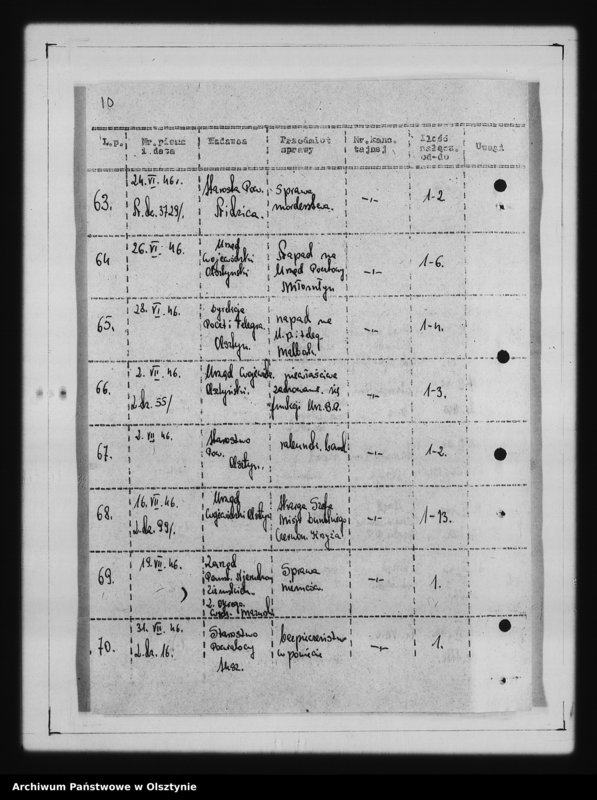 10
L.p. Nr. pisma i data Nadawca Przedmiot sprawy Nr. kanc. tajnej Ilość załącz. od-do Uwagi
63. 24.VI.46r. Starosta Pow. Sprawa -"- 1-2
3729/. Nidzica. morderstwa.
64 26.VI.46. Urząd Wojewódzki Olsztyński Napad na Urząd Pocztowy Miłomłyn -"- 1-6.
65. 28.VI.46. Dyrekcja Poczt i Telegra. Olsztyn. napad na U.p. i teleg. -"- 1-4.
66. 2.VII.46. Urząd Wojewódz. Olsztyński. niewłaściwe zachowanie się funkcj. Urz.B.P. -"- 1-3.
L.dz. 55/
67. 2.VII.46. Starostwo Pow. Olsztyn. rabunek band -"- 1-2.
68. 16.VII.46. Urząd Wojewódzki Olsztyn Skarga Szefa Misji Duńskiego Czerwon. Krzyża -"- 1-13.
L.dz. 99/.
69. 19.VII.46. Zarząd Państ. Nieruchom. Ziemskich Sprawa -"- 1.
70. 31.VII.46. Starostwo Powiatowy bezpieczeństwo w powiecie -"- 1.
L.dz. 16.
Archiwum Państwowe w Olsztynie